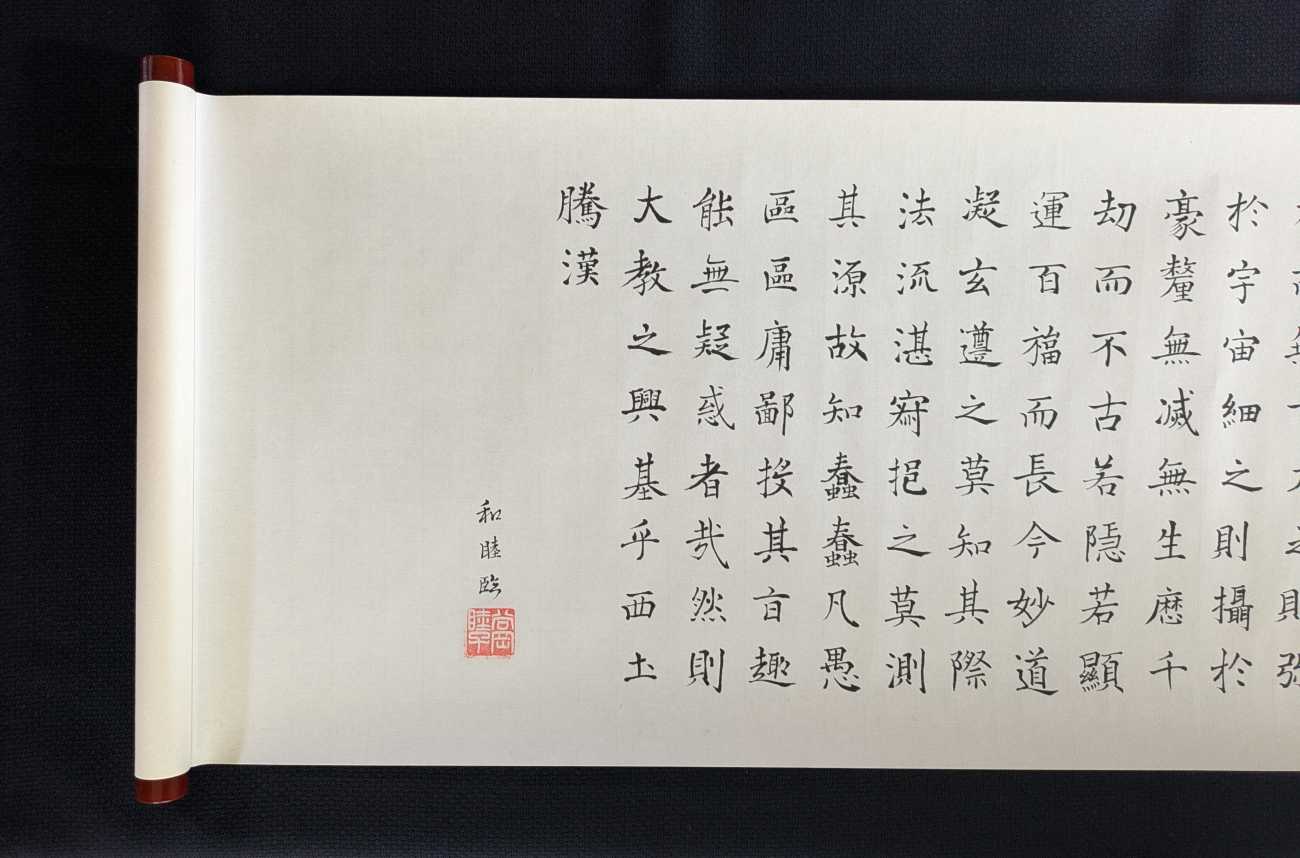 於宇宙細之則攝於
豪釐無滅無生歷千
劫而不古若隱若顯
運百福而長今妙道
凝玄遵之莫知其際
法流湛寂挹之莫測
其源故知蠢蠢凡愚
區區庸鄙投其旨趣
能無疑惑者哉然則
大教之興基乎西土
騰漢
和睦臨